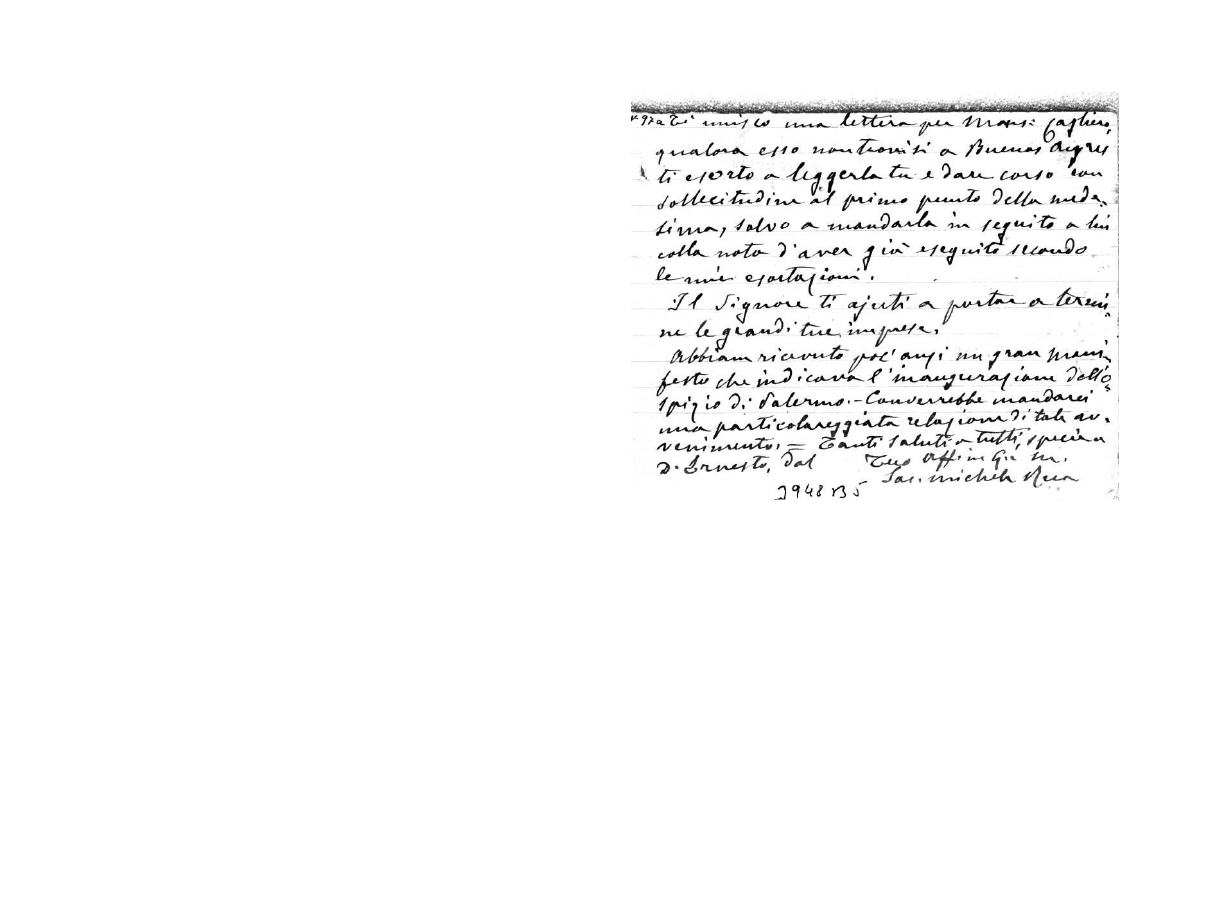 Ti unisco una lettera per Mons: Cagliero,
qualora esso non trovisi a Buenos Ayres
ti esorto a leggerla tu e dare corso con
sollecitudine al primo punto della mede-
sima, salvo a mandarla in seguito a lui
colla nota d'aver già eseguito secondo
le mie esortazioni.
Il Signore ti ajuti a portar a termi-
ne le grandi tue imprese.
Abbiam ricevuto poc'anzi un gran mani-
festo che indicava l'inaugurazione dell'o-
spizio di Salermo. - Converrebbe mandarci
una particolareggiata relazione di tale av-
venimento. = Tanti saluti a tutti, specie a
D. Ernesto, dal Tuo Aff. in G. e M.
Sac. Michele Rua
3948 B 5